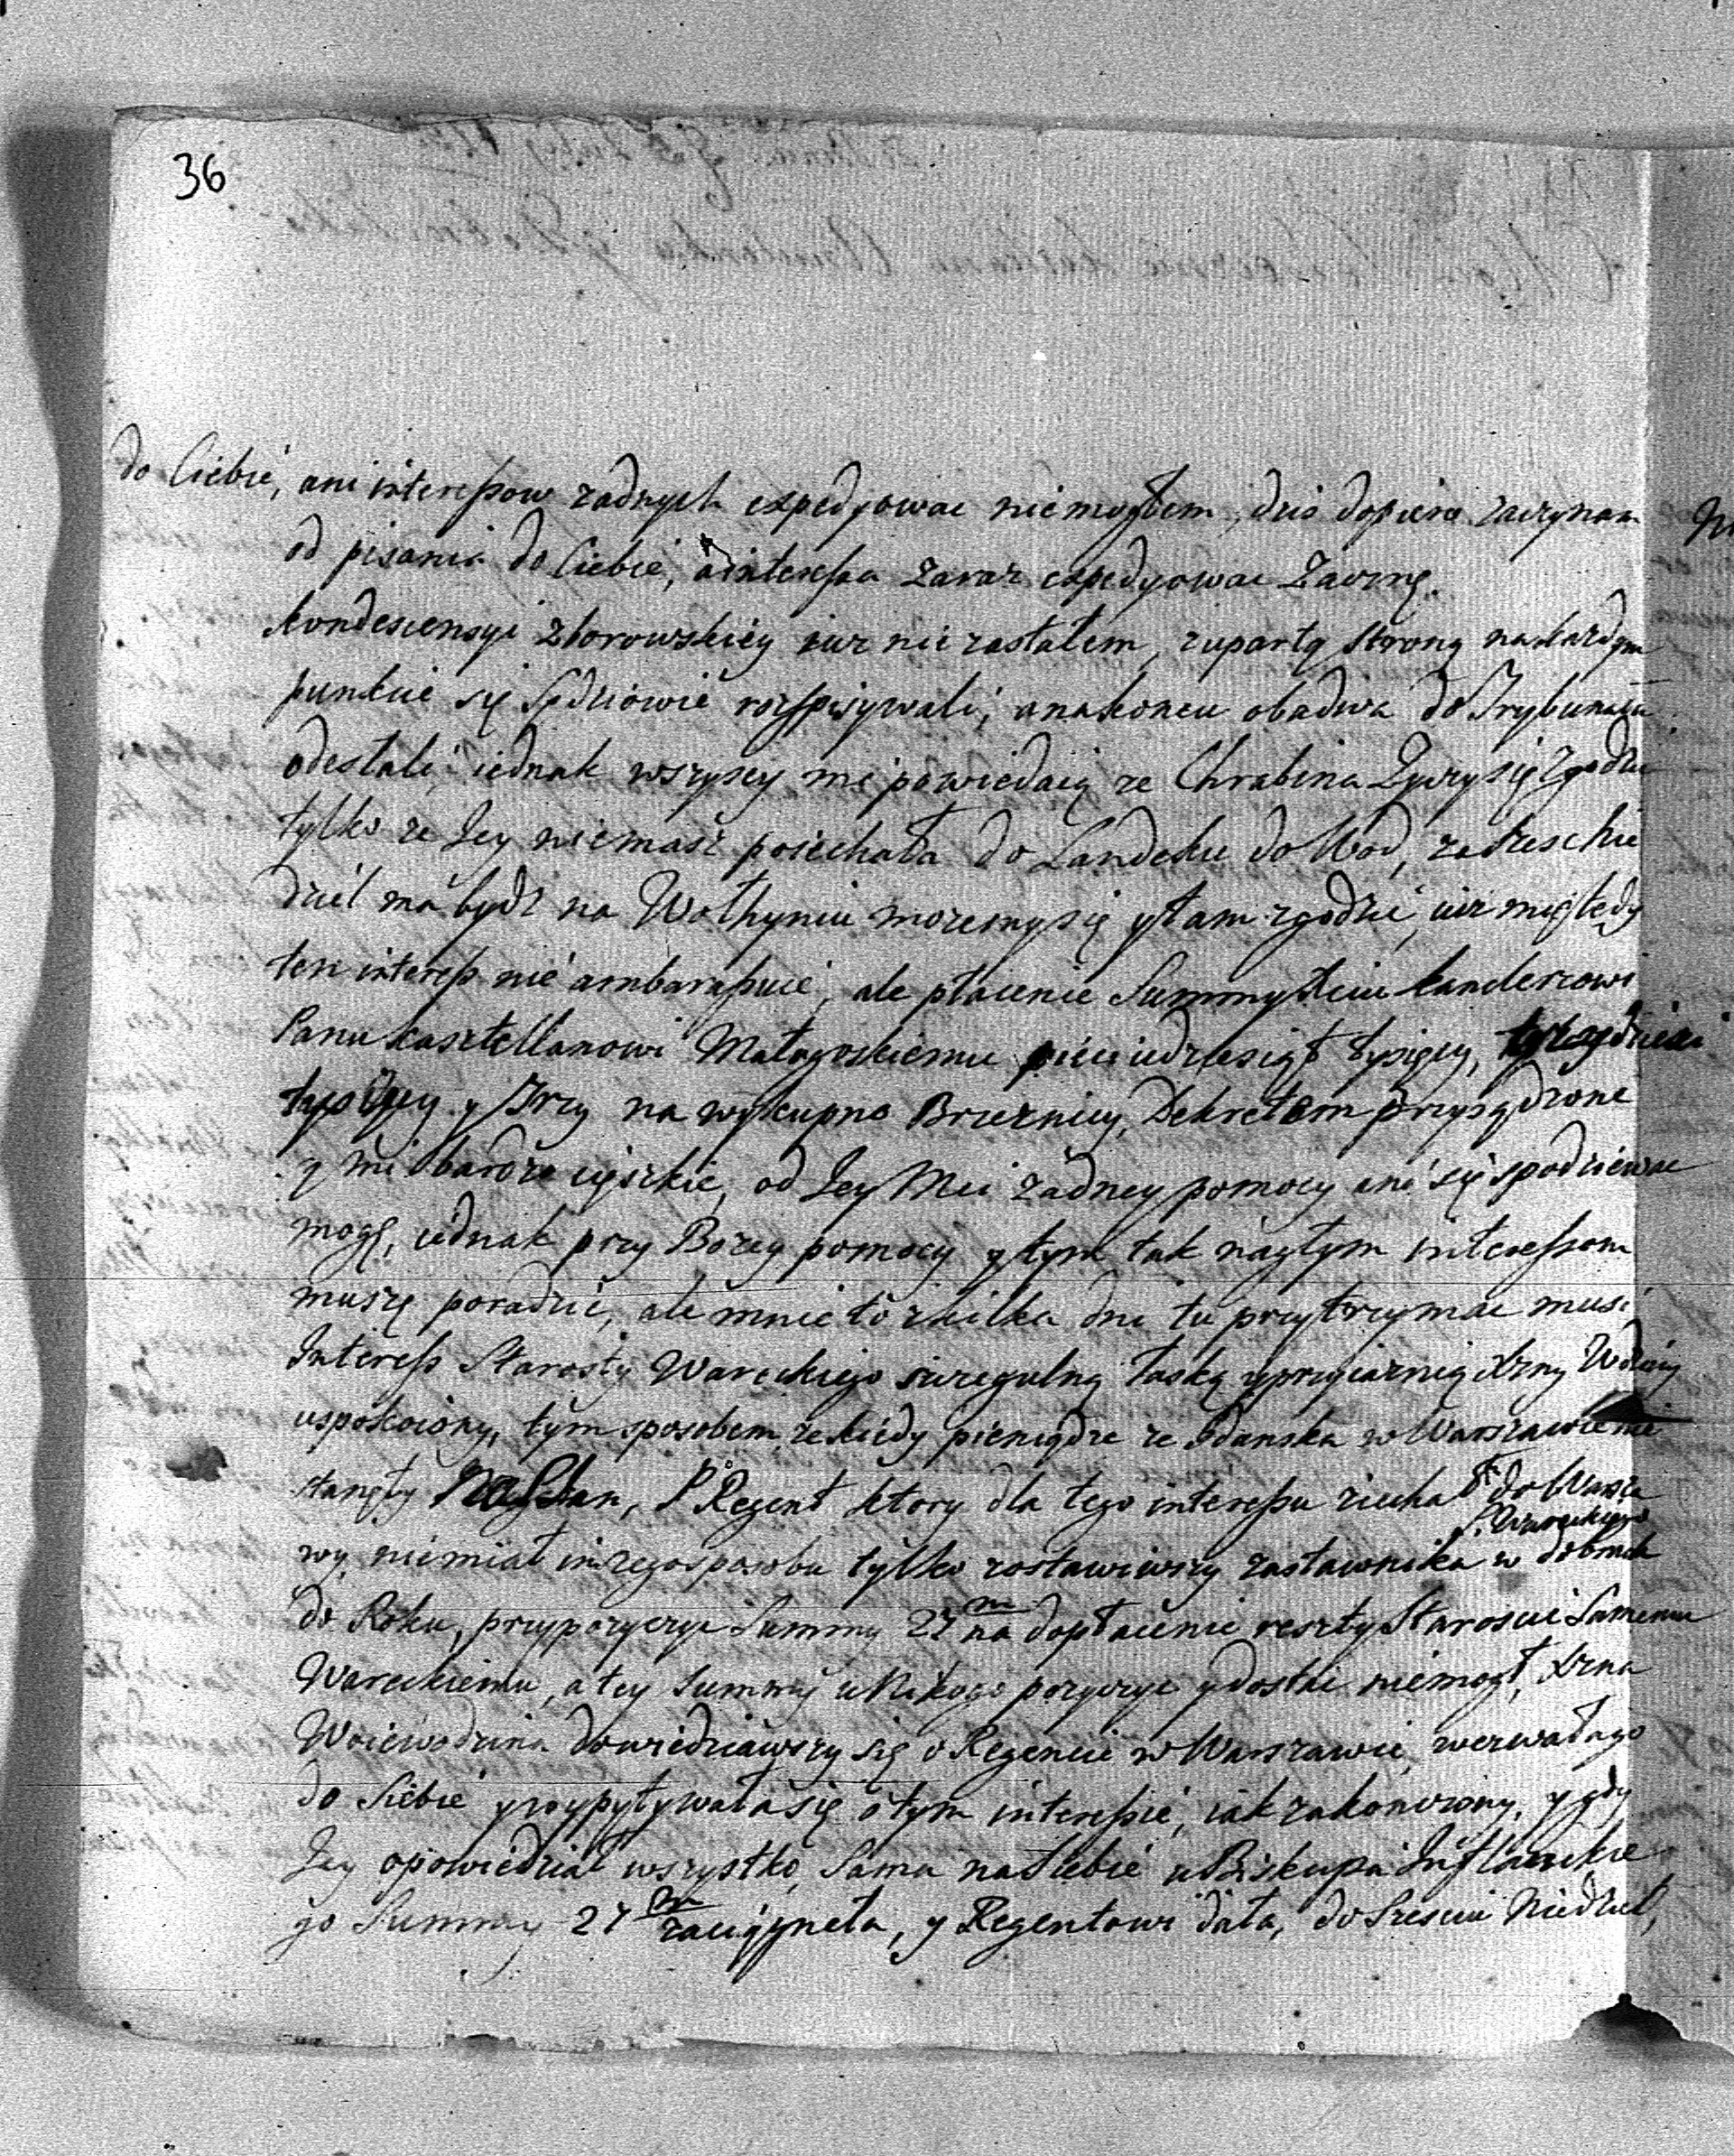 36
do Ciebie, ani interessow zadnych expedyowac niemogłem, dzis dopiero zaczynam
od pisania do Ciebie, a interessa zaraz expedyowac zaczne.
Kondescensyi Zborowskiey iuz nie zastałem, z upartą stroną na kazdym
punkcie się Sędziowie rozpisywali, a nakoncu obadwa do Trybunału
odesłali, iednak wszyscy mi powiedaią ze Chrabina Zyczy się zgodzic
tylko ze Jey niemasz poiechała do Landeku do Wod, za szesc nie
dziel ma bydz na Wołhyniu mozemy się y tam zgodzic, iuz mię tedy
ten interess nie ambarassuie, ale płacenie Summy
Panu Kasztellanowi Małagoskiemu piecdziesiąt tysięcy,
tysięcy y Trzy na wykupno Brzeznicy, Dekretem przysądzone
y mi bardzo cięszkie, od Jey Mci zadney pomocy ani się spodziewac
mogę, iednak przy Bozey pomocy y tym tak nagłym interessom
muszę poradzic, ale mnie to zkilka dni tu przytrzymac musi
Interess Starosty Wareckiego singulną łaską y przyiaznią Xzny Wdziny
uspokoiony, tym sposobem, ze kiedy pieniądze ze Gdanska w Warszawie nie
stanęły P Regent ktory dla tego interessu ziechał do Warsza
wy, niemiał inszego sposobu tylko zostawiwszy zastawnika w dobrach P. Wareckiego
do Roku, przypozyczyc Summy 27 m na dopłacenie reszty Staroscie Samemu
Wareckiemu, a tey Summy u Nikogo pozyczyc y dostac niemogł, Xzna
Woiewodzina dowiedziawszy się o Regencie w Warszawie, wezwała go
do Siebie y wypytywała się o tym interessie, iak zakonczony, y gdy
Jey opowiedział wszystko, Sama na Siebie u Biskupa Inflanckie
go Summy 27 m zaciągneła, y Regentowi dała, do Szesciu Niedziel,